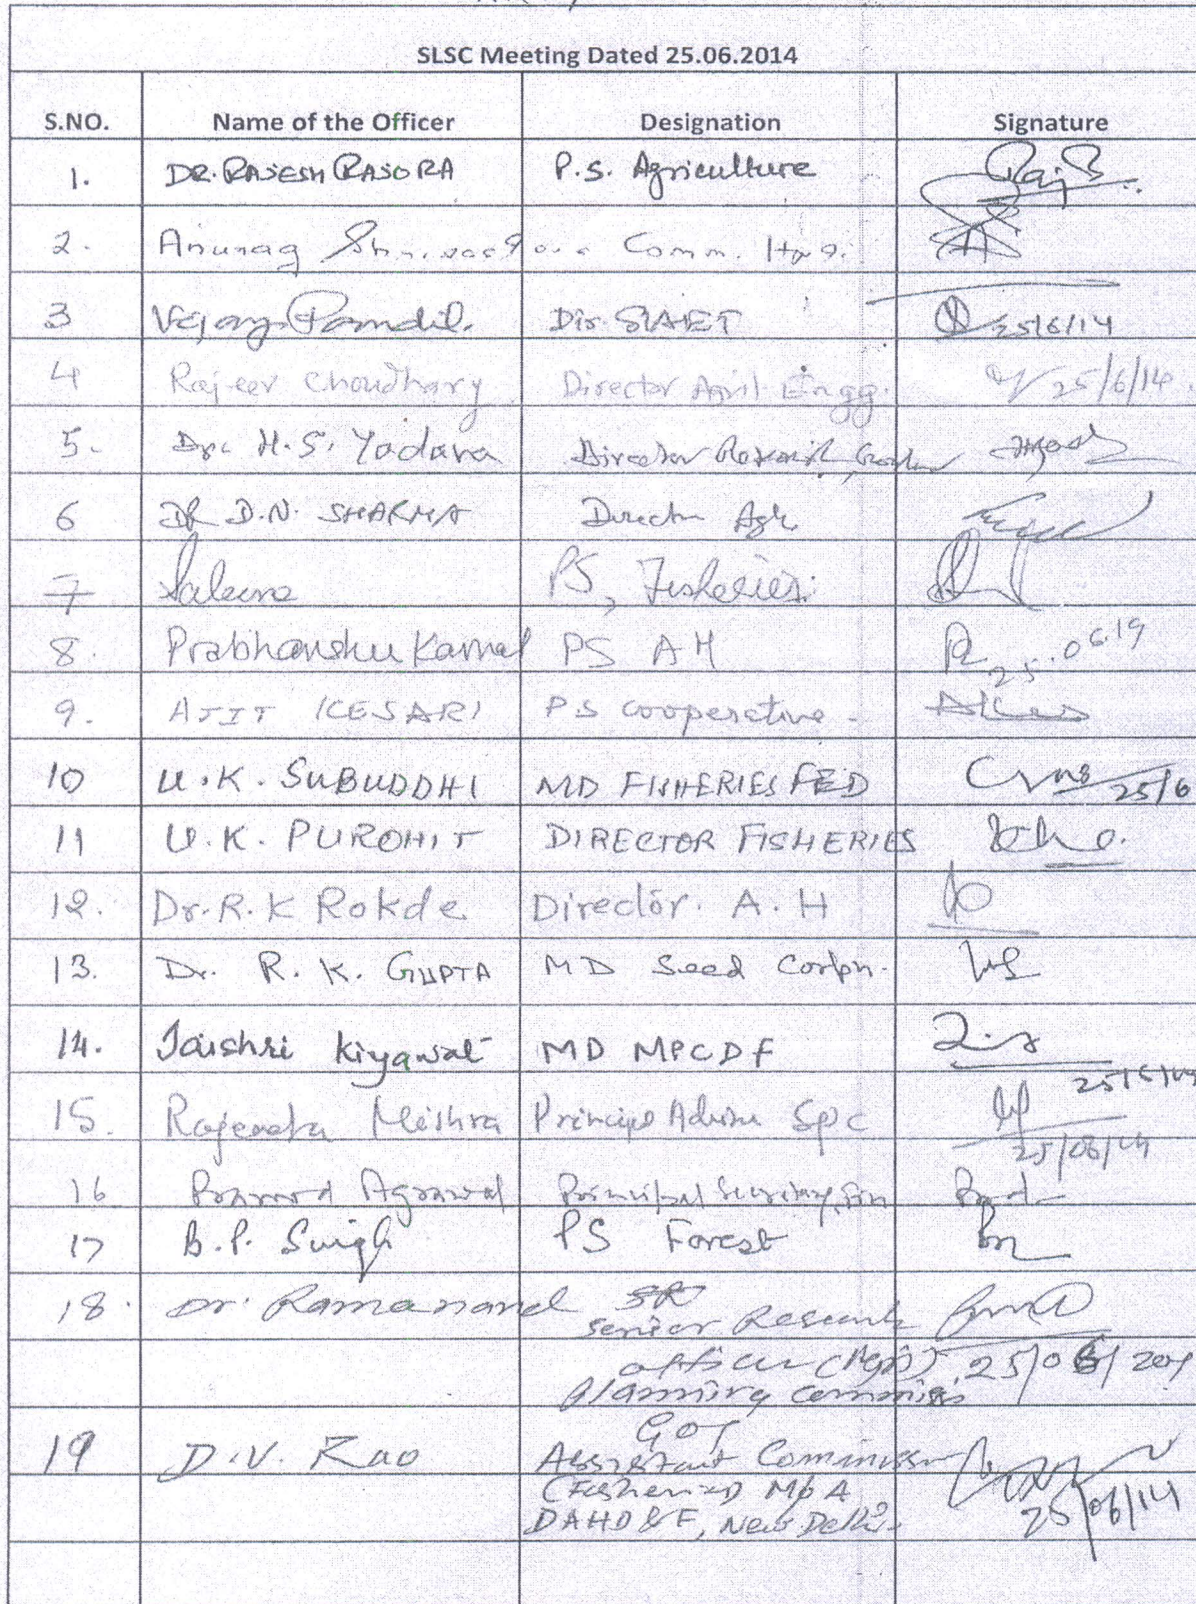 SLSC Meeting Dated 25.06.2014
S.NO. Name of the Officer Designation Signature
1. DR. RAJESH RAJORA P.S. Agriculture
2. Anurag Comm.
3 Vijay Dir. SIAET 25/6/14
4 Rajeev Choudhary Director Engg. 25/6/14
5. Dr. H.S. Yadava Director
6 DR D.N. SHARMA Director Agr.
7 Saleena PS, Fisheries
8. Prabhanshu Kamal PS AH 25.06.14
9. AJIT KESARI P.S cooperative
10 U.K. SUBUDDHI MD FISHERIES FED 25/6
11 U.K. PUROHIT DIRECTOR FISHERIES
12. Dr. R.K Rokde Director. A.H
13. Dr. R. K. GUPTA MD Seed Corpn.
14. Jaishri Kiyawat MD MPCDF
25/6/14
15. Rajendra Mishra SPC
25/06/14
16 Pramod Agrawal Principal Secretary, Fin
17 B.P. Singh PS Forest
18. Dr. Ramanand SR
Senior Research
officer (Agri) 25/06/201
planning commission
GOI
19 D.V. Rao Assistant Commissioner
(Fisheries) MoA
DAHD&F, New Delhi. 25/06/14